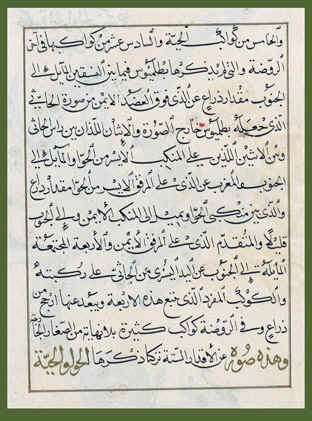 والخامس من كواكب الحيّة والسادس عشر من كواكبها في
الروضة والتي لم يذكرها بطلميوس فيما بين النسقين المائل إلى
الجنوب مقدار ذراع عن الذي فوق العضد الايمن من صورة الجاثي
الذي جعله بطلميوس خارج الصورة والاثنان اللذان بين راس الجاثي
وبين الاثنين اللذين على المنكب الايمن من الحوّا والمائل إلى
الجنوب والمغرب عن الذي على المرفق الايسر من الحوّا مقدار ذراع
والذي بين منكبي الحوّا ويميل إلى المنكب الايمن وإلى الجنوب
قليلا والمتقدم الذي على المرفق الايمن والاربعة المجتمعة
المائلة إلى الجنوب عن اليد اليسرى من الجاثي على ركبته
والكوكب المفرد الذي يتبع هذه الاربعة ويبعد عنها
ذراع وفي الروضة كواكب كثيرة بلا نهاية من اصغار
عن الاقدار الستة تركنا ذكرها وهذه صورة الحوا والحية